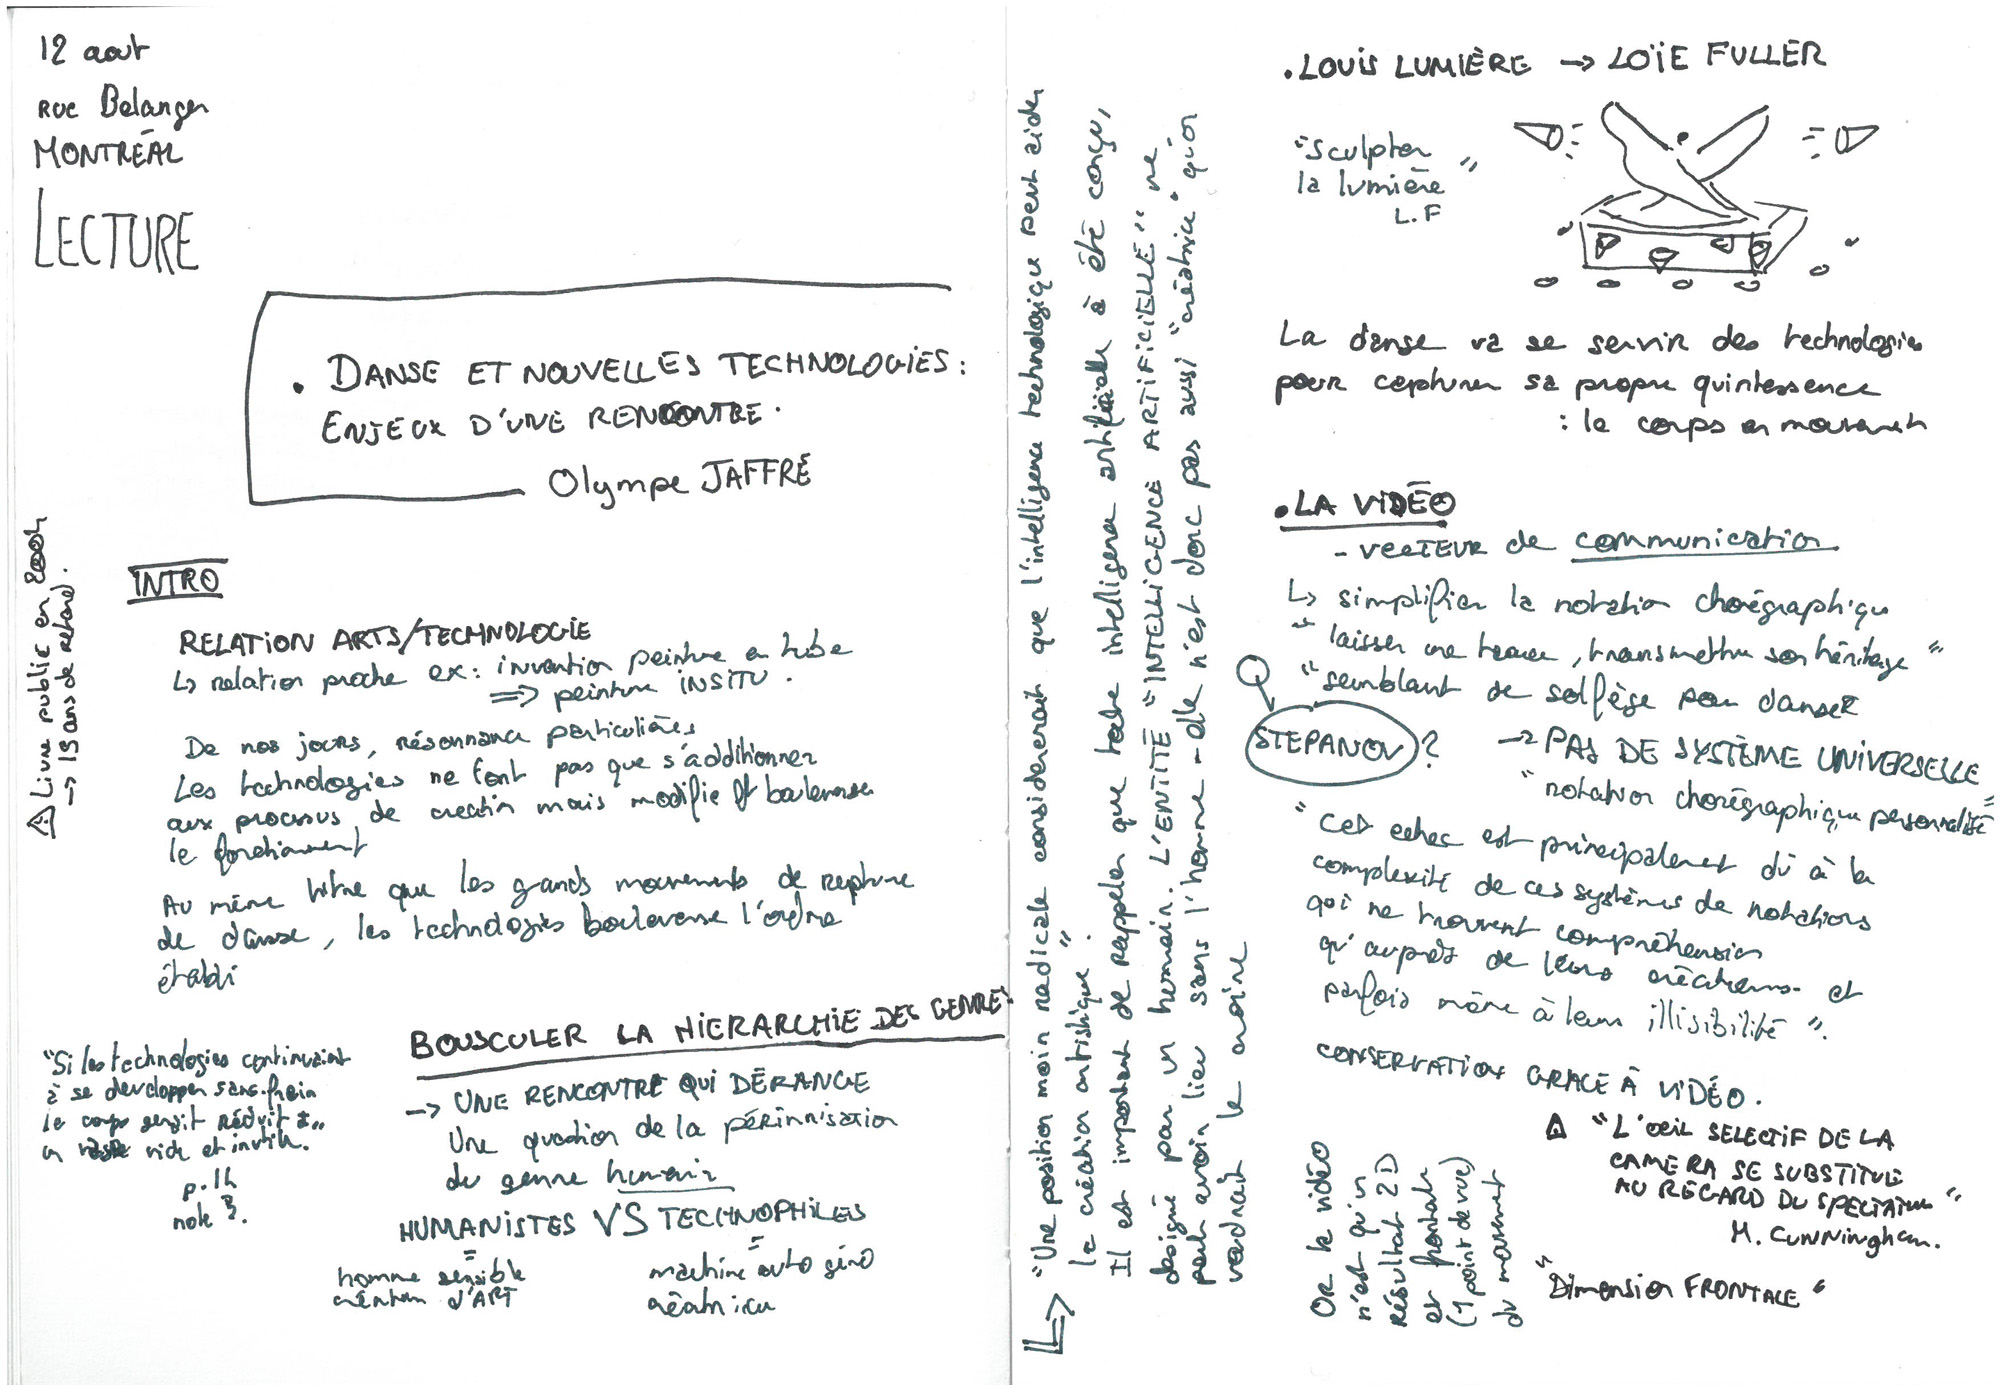 12 aout
RUE Belanger
MONTRÉAL
LECTURE
. DANSE ET NOUVELLES TECHNOLOGIES :
ENJEUX D'UNE RENCONTRE.
Olympe JAFFRÉ
⚠ Livre public en 2004
→ 15 ans de retard.
INTRO
RELATION ARTS/TECHNOLOGIE
↳ relation proche ex: invention peinture en tube
=> peinture INSITU.
De nos jours, résonnance particulières
Les technologies ne font pas que s'additionner
aux processus de creation mais modifie et bouleverse
le fonctionnement
Au même titre que les grands mouvements de rupture
de danse, les technologies bouleverse l'ordre
établi
BOUSCULER LA HIERARCHIE DES GENRE
→ UNE RENCONTRE QUI DÉRANGE
Une question de la pérénnisation
du genre humain
HUMANISTES VS TECHNOPHILES
= =
homme sensible
création d'ART
machine auto géré
créatrice
"Si les technologies continuaient
à se developper sans frein
le corps serait réduit à..
un vide et inutile.
p.14
note 3.
↳ "Une position moin radicale considererait que l'intelligence technologique peut aider
la création artistique".
Il est important de rappeler que toute intelligence artificielle à été conçu,
designé par un humain. L'ENTITÉ "INTELLIGENCE ARTIFICIELLE" ne
peut avoir lieu sans l'homme - elle n'est donc pas aussi "créatrice" qu'on
voudrait le croire
. LOUIS LUMIÈRE → LOÏE FULLER
"Sculpter
la lumière "
L.F
La danse va se servir des technologies
pour capturer sa propre quintessence
: le corps en mouvement
. LA VIDÉO
- VECTEUR de communication
↳ simplifier la notation chorégraphique
" laisser une trace, transmettre son héritage "
" semblant de solfège pour danser
STEPANOV ?
→ PAS DE SYSTÈME UNIVERSELLE
" notation chorégraphique personnalisé "
" Cet echec est principalement dû à la
complexité de ces systèmes de notations
qui ne trouvent compréhension
qu'auprès de leurs créateurs et
parfois même à leur illisibilité ".
CONSERVATION GRACE À VIDÉO.
⚠ "L'OEIL SELECTIF DE LA
CAMERA SE SUBSTITUE
AU REGARD DU SPECTATEUR "
M. CUNNINGHAM.
"Dimension FRONTALE "
OR la vidéo
n'est qu'un
résultat 2D
et frontale
(1 point de vue)
du mouvement